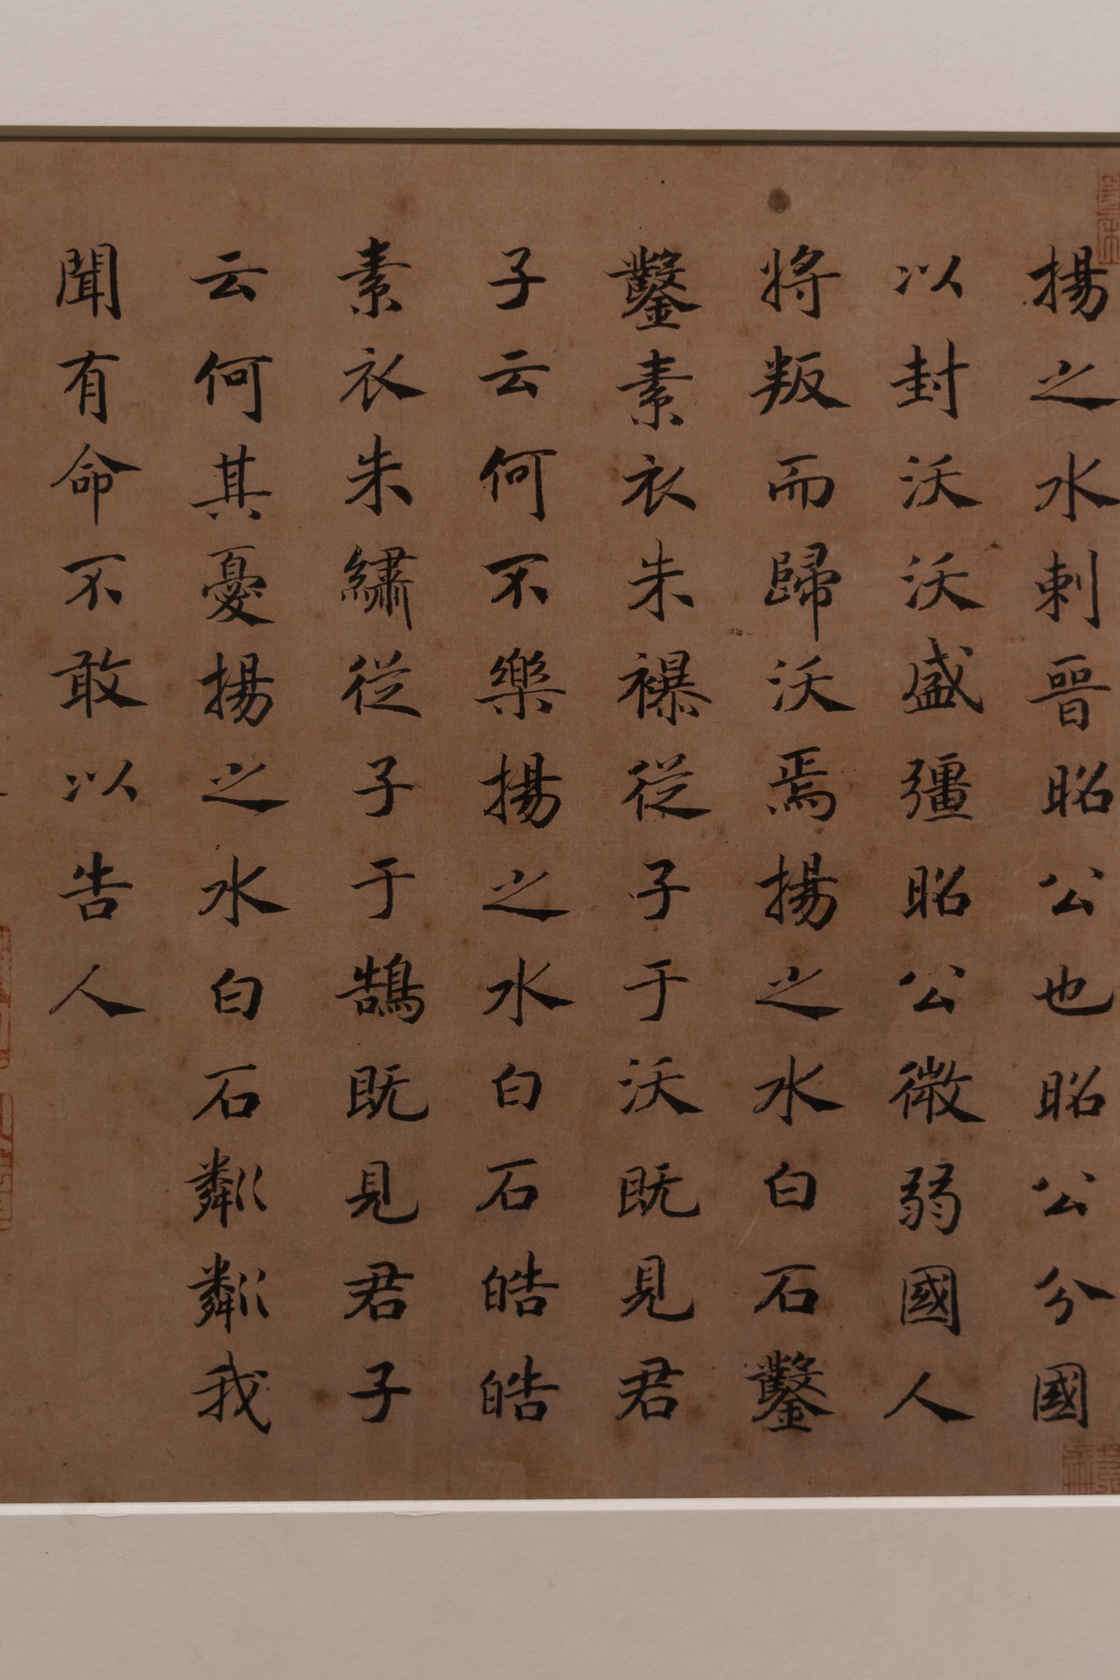 揚之水刺晉昭公也昭公分國
以封沃沃盛彊昭公微弱國人
將叛而歸沃焉揚之水白石鑿
鑿素衣朱襮從子于沃既見君
子云何不樂揚之水白石皓皓
素衣朱繡從子于鵠既見君子
云何其憂揚之水白石粼粼我
聞有命不敢以告人